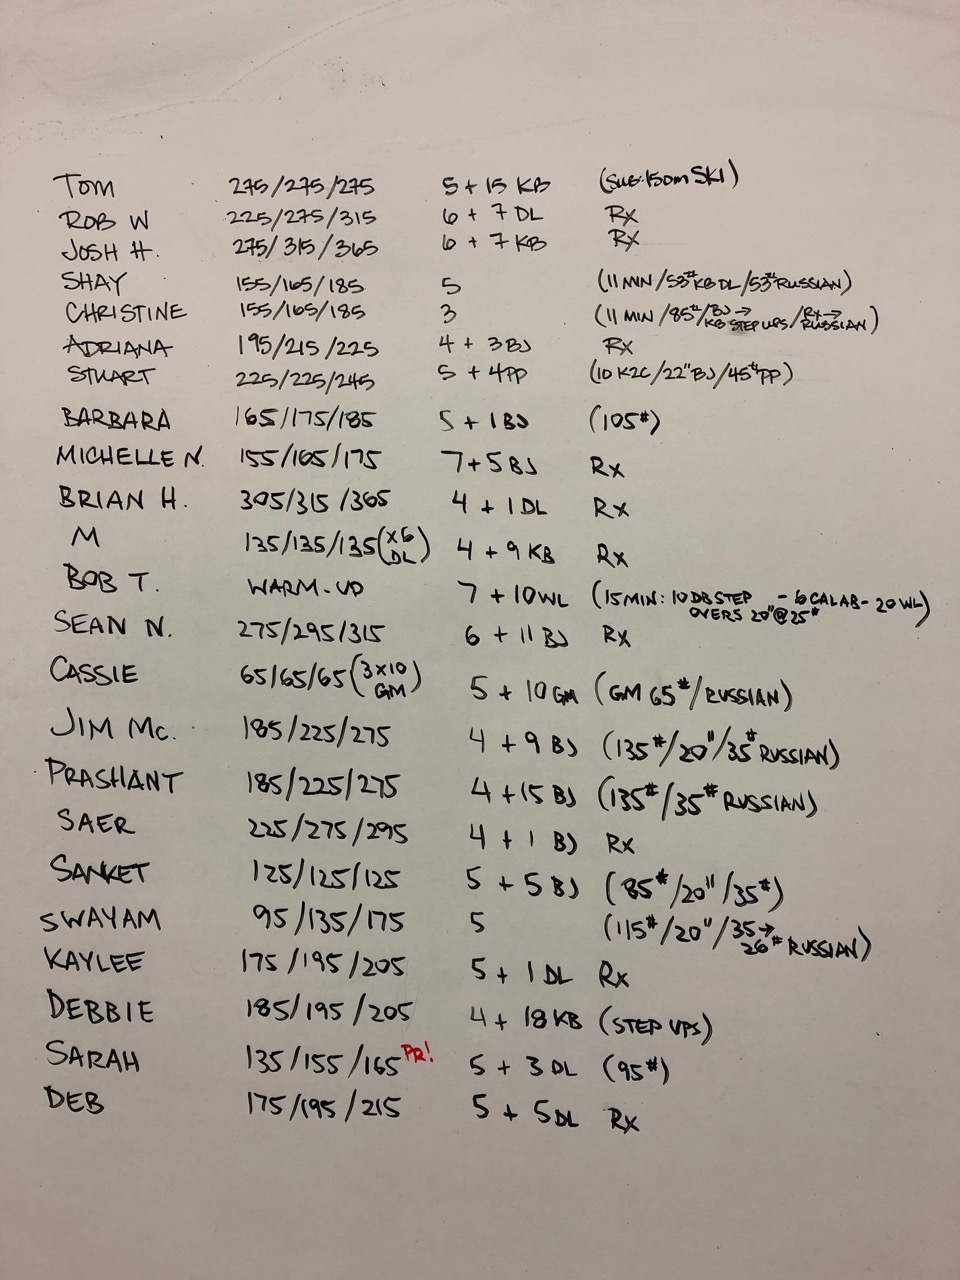 TOM 275/275/275 5 + 15 KB (SUB: 150m SKI)
ROB W 225/275/315 6 + 7 DL Rx
JOSH H. 275/315/365 6 + 7 KB Rx
SHAY 155/165/185 5 (11 MIN/53# KB DL/53# RUSSIAN)
CHRISTINE 155/165/185 3 (11 MIN/85#/BJ → KB STEP UPS/Rx → RUSSIAN)
ADRIANA 195/215/225 4 + 3 BJ Rx
STUART 225/225/245 5 + 4 PP (10 K2C/22" BJ/45# PP)
BARBARA 165/175/185 5 + 1 BJ (105#)
MICHELLE N. 155/165/175 7 + 5 BJ Rx
BRIAN H. 305/315/365 4 + 1 DL Rx
M 135/135/135 (x6 DL) 4 + 9 KB Rx
BOB T. WARM-UP 7 + 10 WL (15 MIN: 10 DB STEP OVERS 20" @ 25# - 6 CAL AB - 20 WL)
SEAN N. 275/295/315 6 + 11 BJ Rx
CASSIE 65/65/65 (3x10 GM) 5 + 10 GM (GM 65#/RUSSIAN)
JIM MC. 185/225/275 4 + 9 BJ (135#/20"/35# RUSSIAN)
PRASHANT 185/225/275 4 + 15 BJ (135#/35# RUSSIAN)
SAER 225/275/295 4 + 1 BJ Rx
SANKET 125/125/125 5 + 5 BJ (85#/20"/35#)
SWAYAM 95/135/175 5 (115#/20"/35 → 26# RUSSIAN)
KAYLEE 175/195/205 5 + 1 DL Rx
DEBBIE 185/195/205 4 + 18 KB (STEP UPS)
SARAH 135/155/165 PR! 5 + 3 DL (95#)
DEB 175/195/215 5 + 5 DL Rx